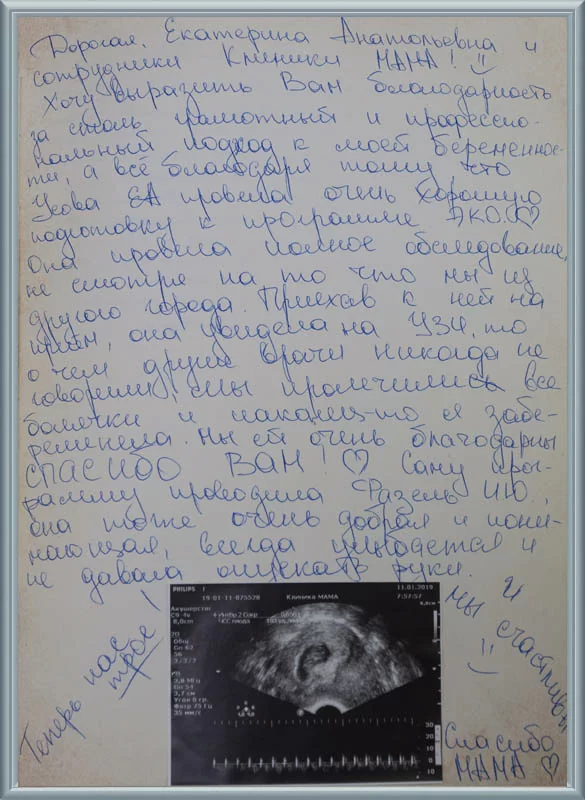 Дорогая, Екатерина Анатольевна и
сотрудники Клиники МАМА!
Хочу выразить Вам благодарность
за столь грамотный и профессио-
нальный подход к моей беременнос-
ти, а всё благодаря тому, что
Усова ЕА провела очень хорошую
подготовку к программе ЭКО.
Она провела полное обследование,
не смотря на то что мы из
другого города. Приехав к ней на
прием, она увидела на УЗИ, то
о чем другие врачи никогда не
говорили, мы пролечили все
болячки и наконец-то я забе-
ременела. Мы ей очень благодарны
СПАСИБО ВАМ! Саму прог-
рамму проводила Фазель ИЮ,
она тоже очень добрая и пони-
мающая, всегда улыбается и
не давала опускать руки.
Теперь нас трое!
И мы счастливы
PHILIPS
19-01-11-075528 Клиника МАМА
11.01.2019
7:57:57
Акушерство
C9-4v
8,0см
2D
Общ
Gn 62
56
3/3/2
PW
2,8 МГц
Gn 54
3,7 см
Угол 0 гр.
Фильтр 75 Гц
35 мм/с
30
20
10
10
Спасибо
МАМА